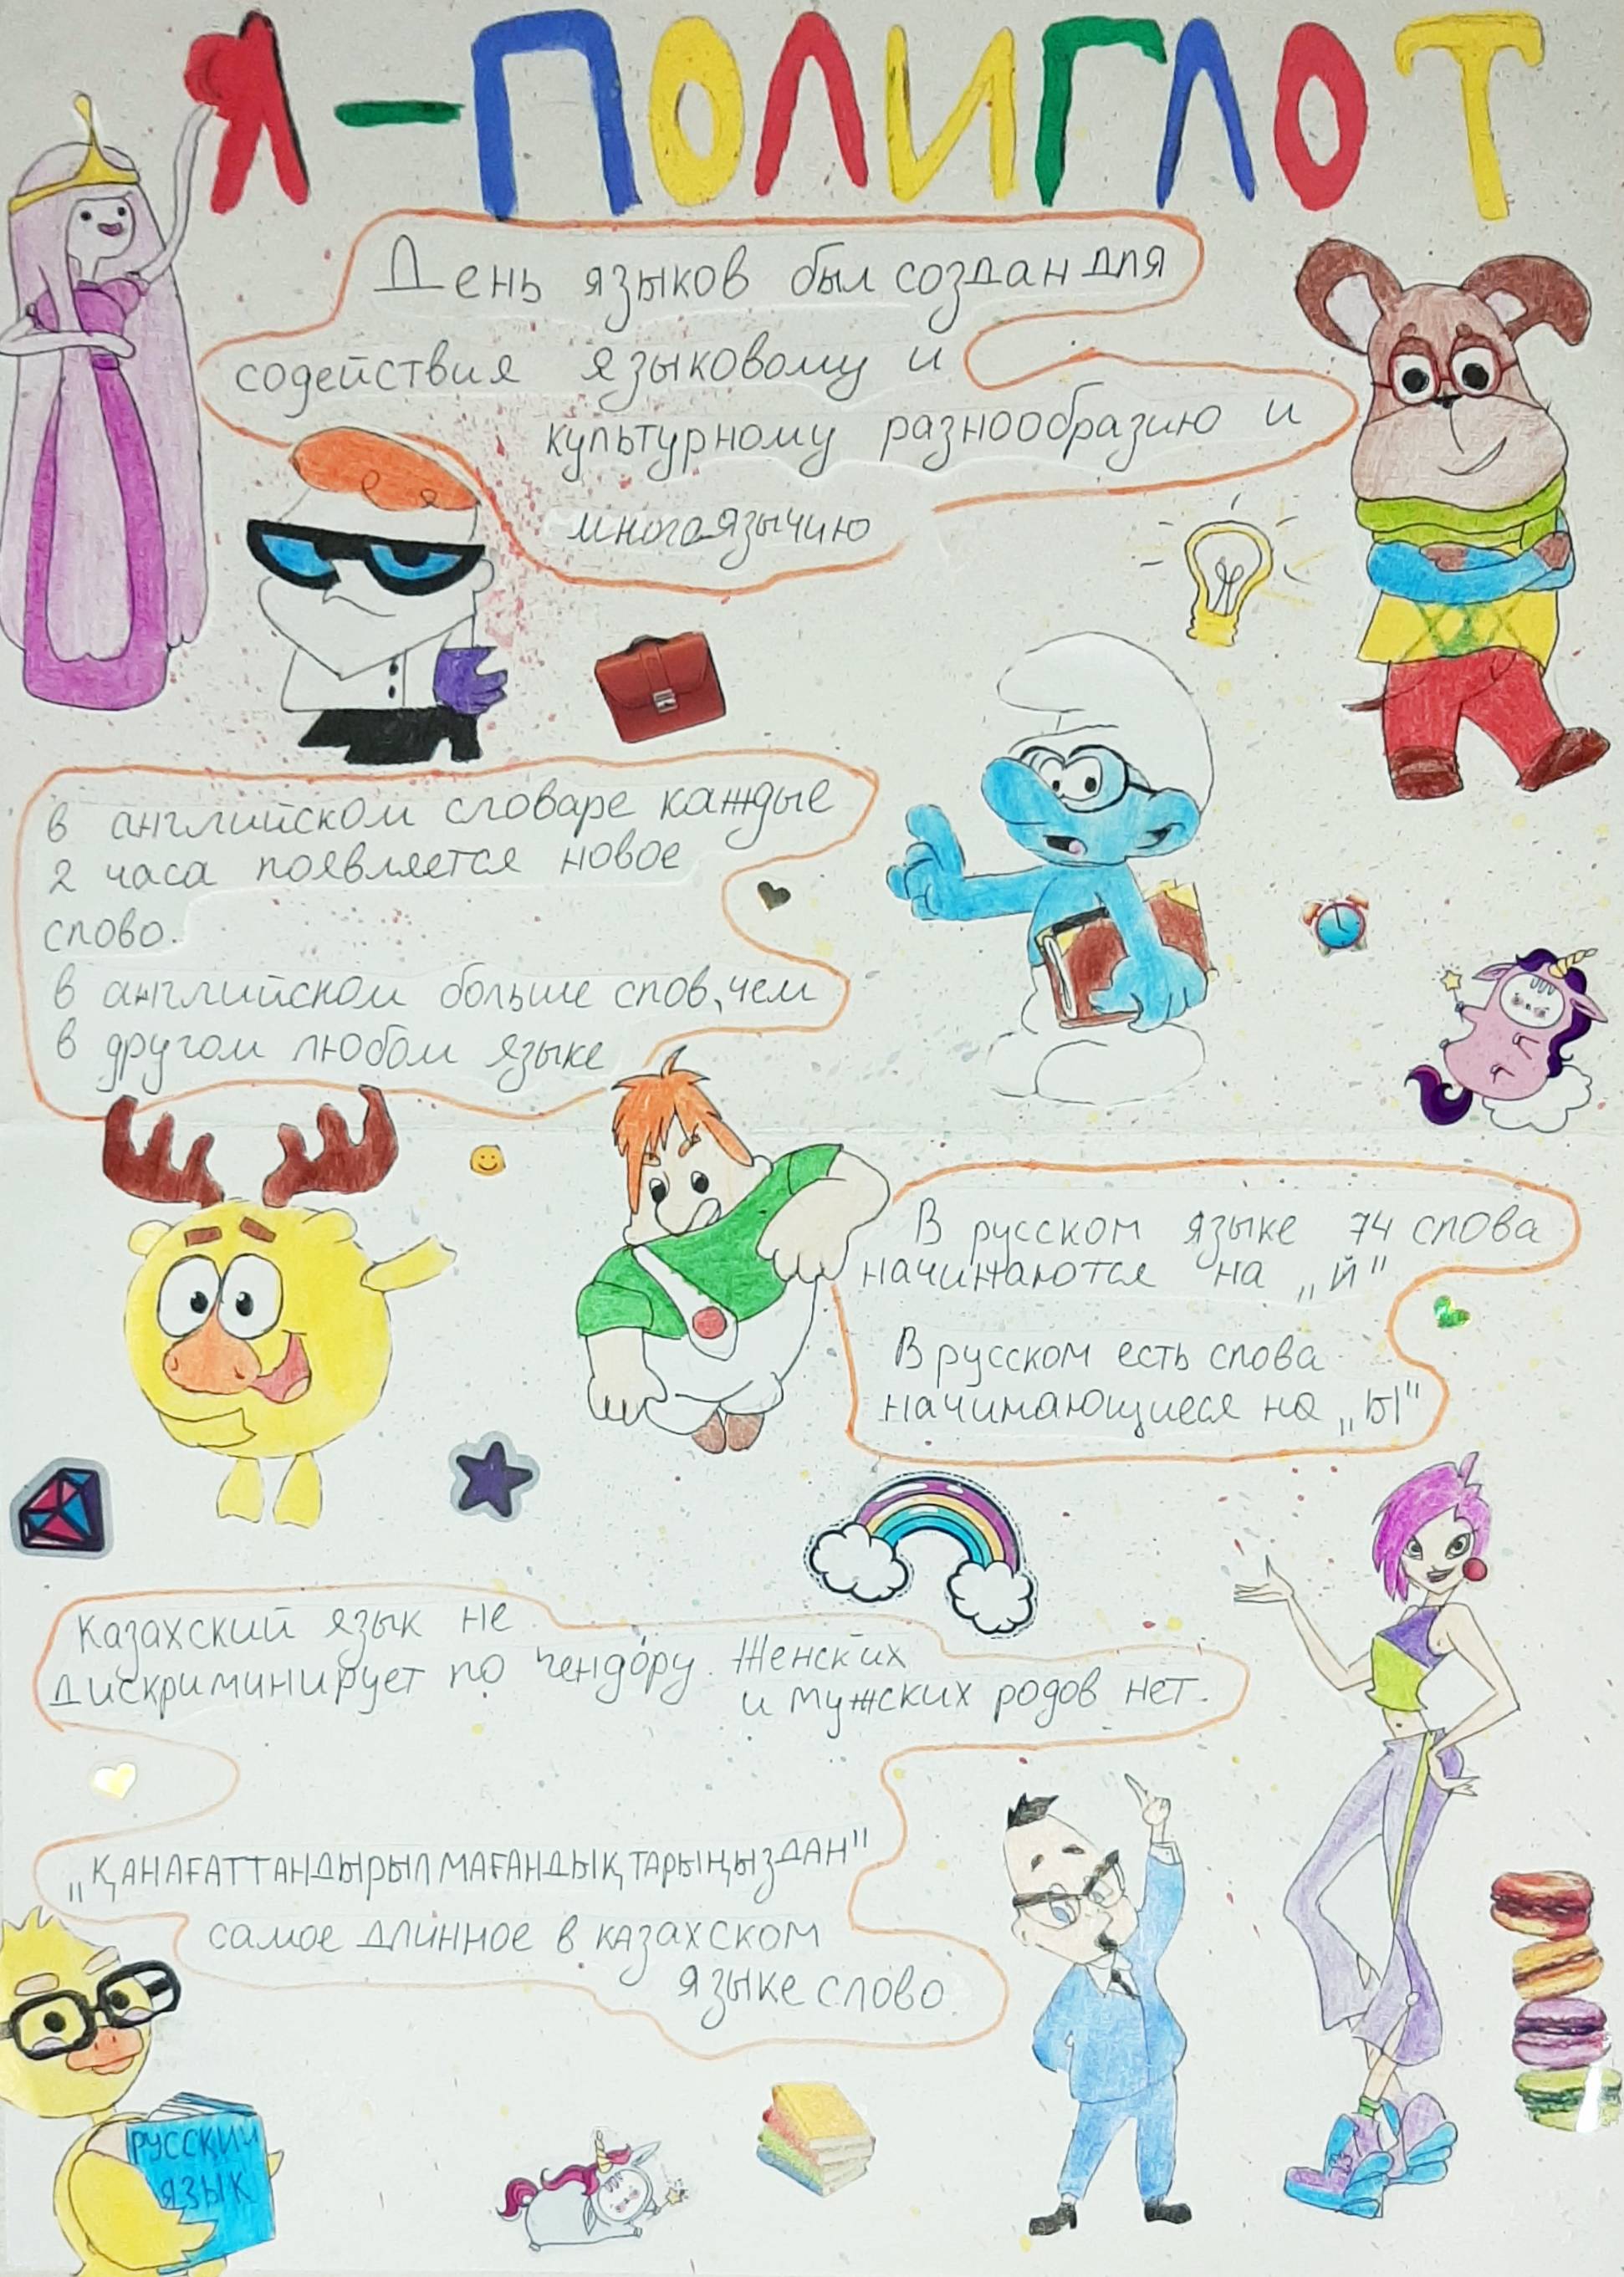 Я-ПОЛИГЛОТ
День языков был создан для
содействия языковому и
культурному разнообразию и
многоязычию
в английском словаре каждые
2 часа появляется новое
слово.
в английском больше слов, чем
в другом любом языке
В русском языке 74 слова
начинаются на „й"
В русском есть слова
начинающиеся на „ы"
Казахский язык не
дискриминирует по гендору. Женских
и мужских родов нет.
„ҚАНАҒАТТАНДЫРЫЛМАҒАНДЫҚТАРЫҢЫЗДАН"
самое длинное в казахском
языке слово
РУССКИЙ
ЯЗЫК